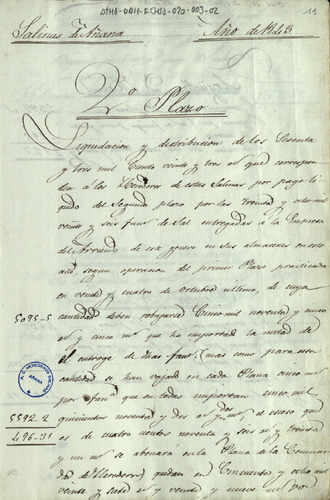 ATHA-DAH-FCHSA-020-003-02
11
Salinas de Añana
Año de 1843
2º Plazo
Liquidacion y distribucion de los Sesenta
y tres mil Ciento veinte y tres rs qe correspon
den a los Herederos de estas Salinas por pago li
quido del Segundo plazo por las treinta y ocho mil
veinte y seis fans de Sal entregadas a la Empresa
del Arriendo de ese genero en sus almacenes en este
año segun operacion del primer Plazo practicada
en veinte y cuatro de Octubre ultimo, de cuya
5095-5
cantidad deben rebajarse Cinco mil noventa y cinco
rs y cinco ms que ha importado la mitad de
el entroge de dhas fans (mas como para esta
cantidad se han bajado en cada Plana cinco ms
por fana que en todas importan cinco mil
5592-2
quinientos noventa y dos rs y dos ms el exceso que
496-31
es de cuatro cientos noventa y seis rs y treinta
y un ms se abonara en la Plana de la Comunidad
de Herederos) quedan en Cincuenta y ocho mil
veinte y siete rs y veinte y nueve ms por
A. C. HEREDEROS SALINAS
AÑANA